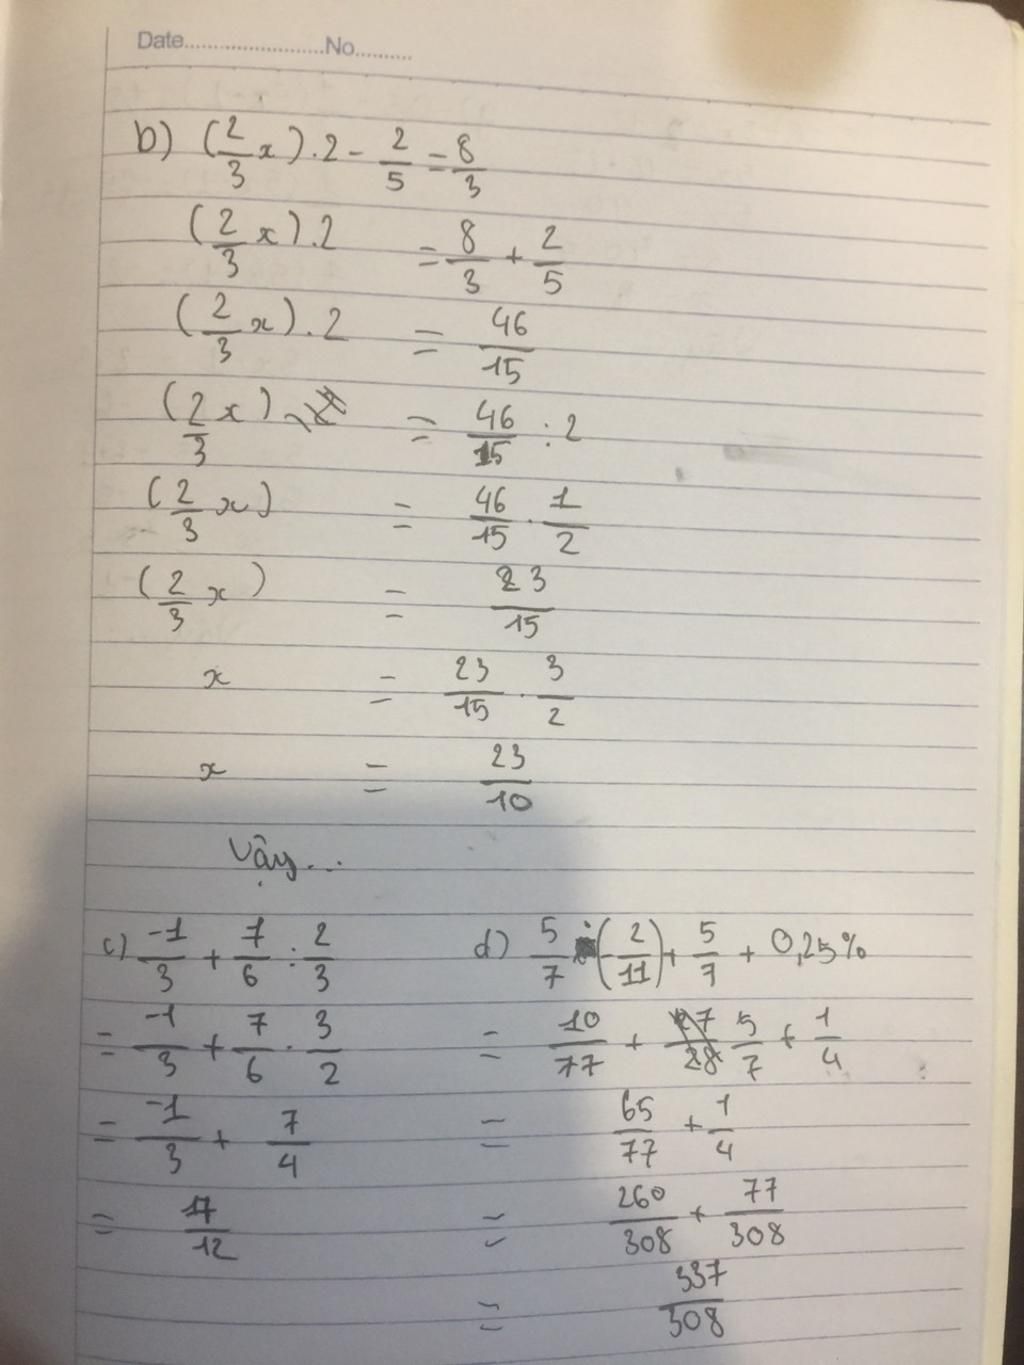 Date........................No..........
b) (2/3 x) . 2 - 2/5 = 8/3
(2/3 x) . 2 = 8/3 + 2/5
(2/3 x) . 2 = 46/15
(2/3 x) = 46/15 : 2
(2/3 x) = 46/15 . 1/2
(2/3 x) = 23/15
x = 23/15 . 3/2
x = 23/10
Vậy...
c) -1/3 + 7/6 : 2/3
= -1/3 + 7/6 . 3/2
= -1/3 + 7/4
= 17/12
d) 5/7 (-2/11) + 5/7 + 0,25%
= 10/77 + 5/7 + 1/4
= 65/77 + 1/4
= 260/308 + 77/308
= 337/308